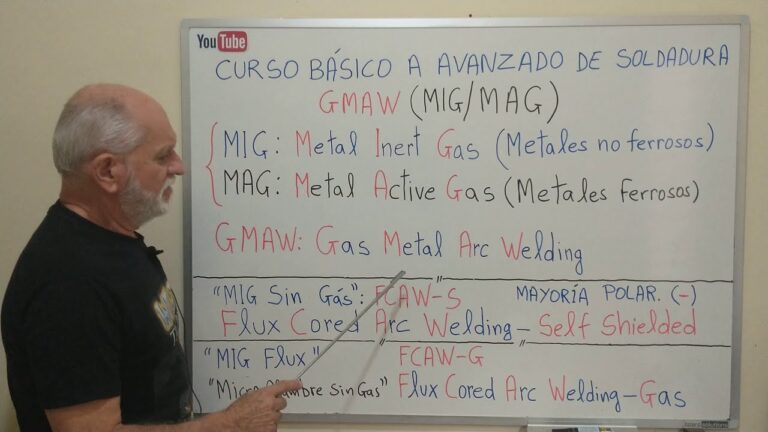 YouTube
CURSO BÁSICO A AVANZADO DE SOLDADURA
GMAW (MIG/MAG)
MIG: Metal Inert Gas (Metales no ferrosos)
MAG: Metal Active Gas (Metales ferrosos)
GMAW: Gas Metal Arc Welding
"MIG Sin Gás": FCAW-S MAYORÍA POLAR. (-)
Flux Cored Arc Welding - Self Shielded
"MIG Flux" FCAW-G
"Micro Alambre Sin Gas" Flux Cored Arc Welding-Gas